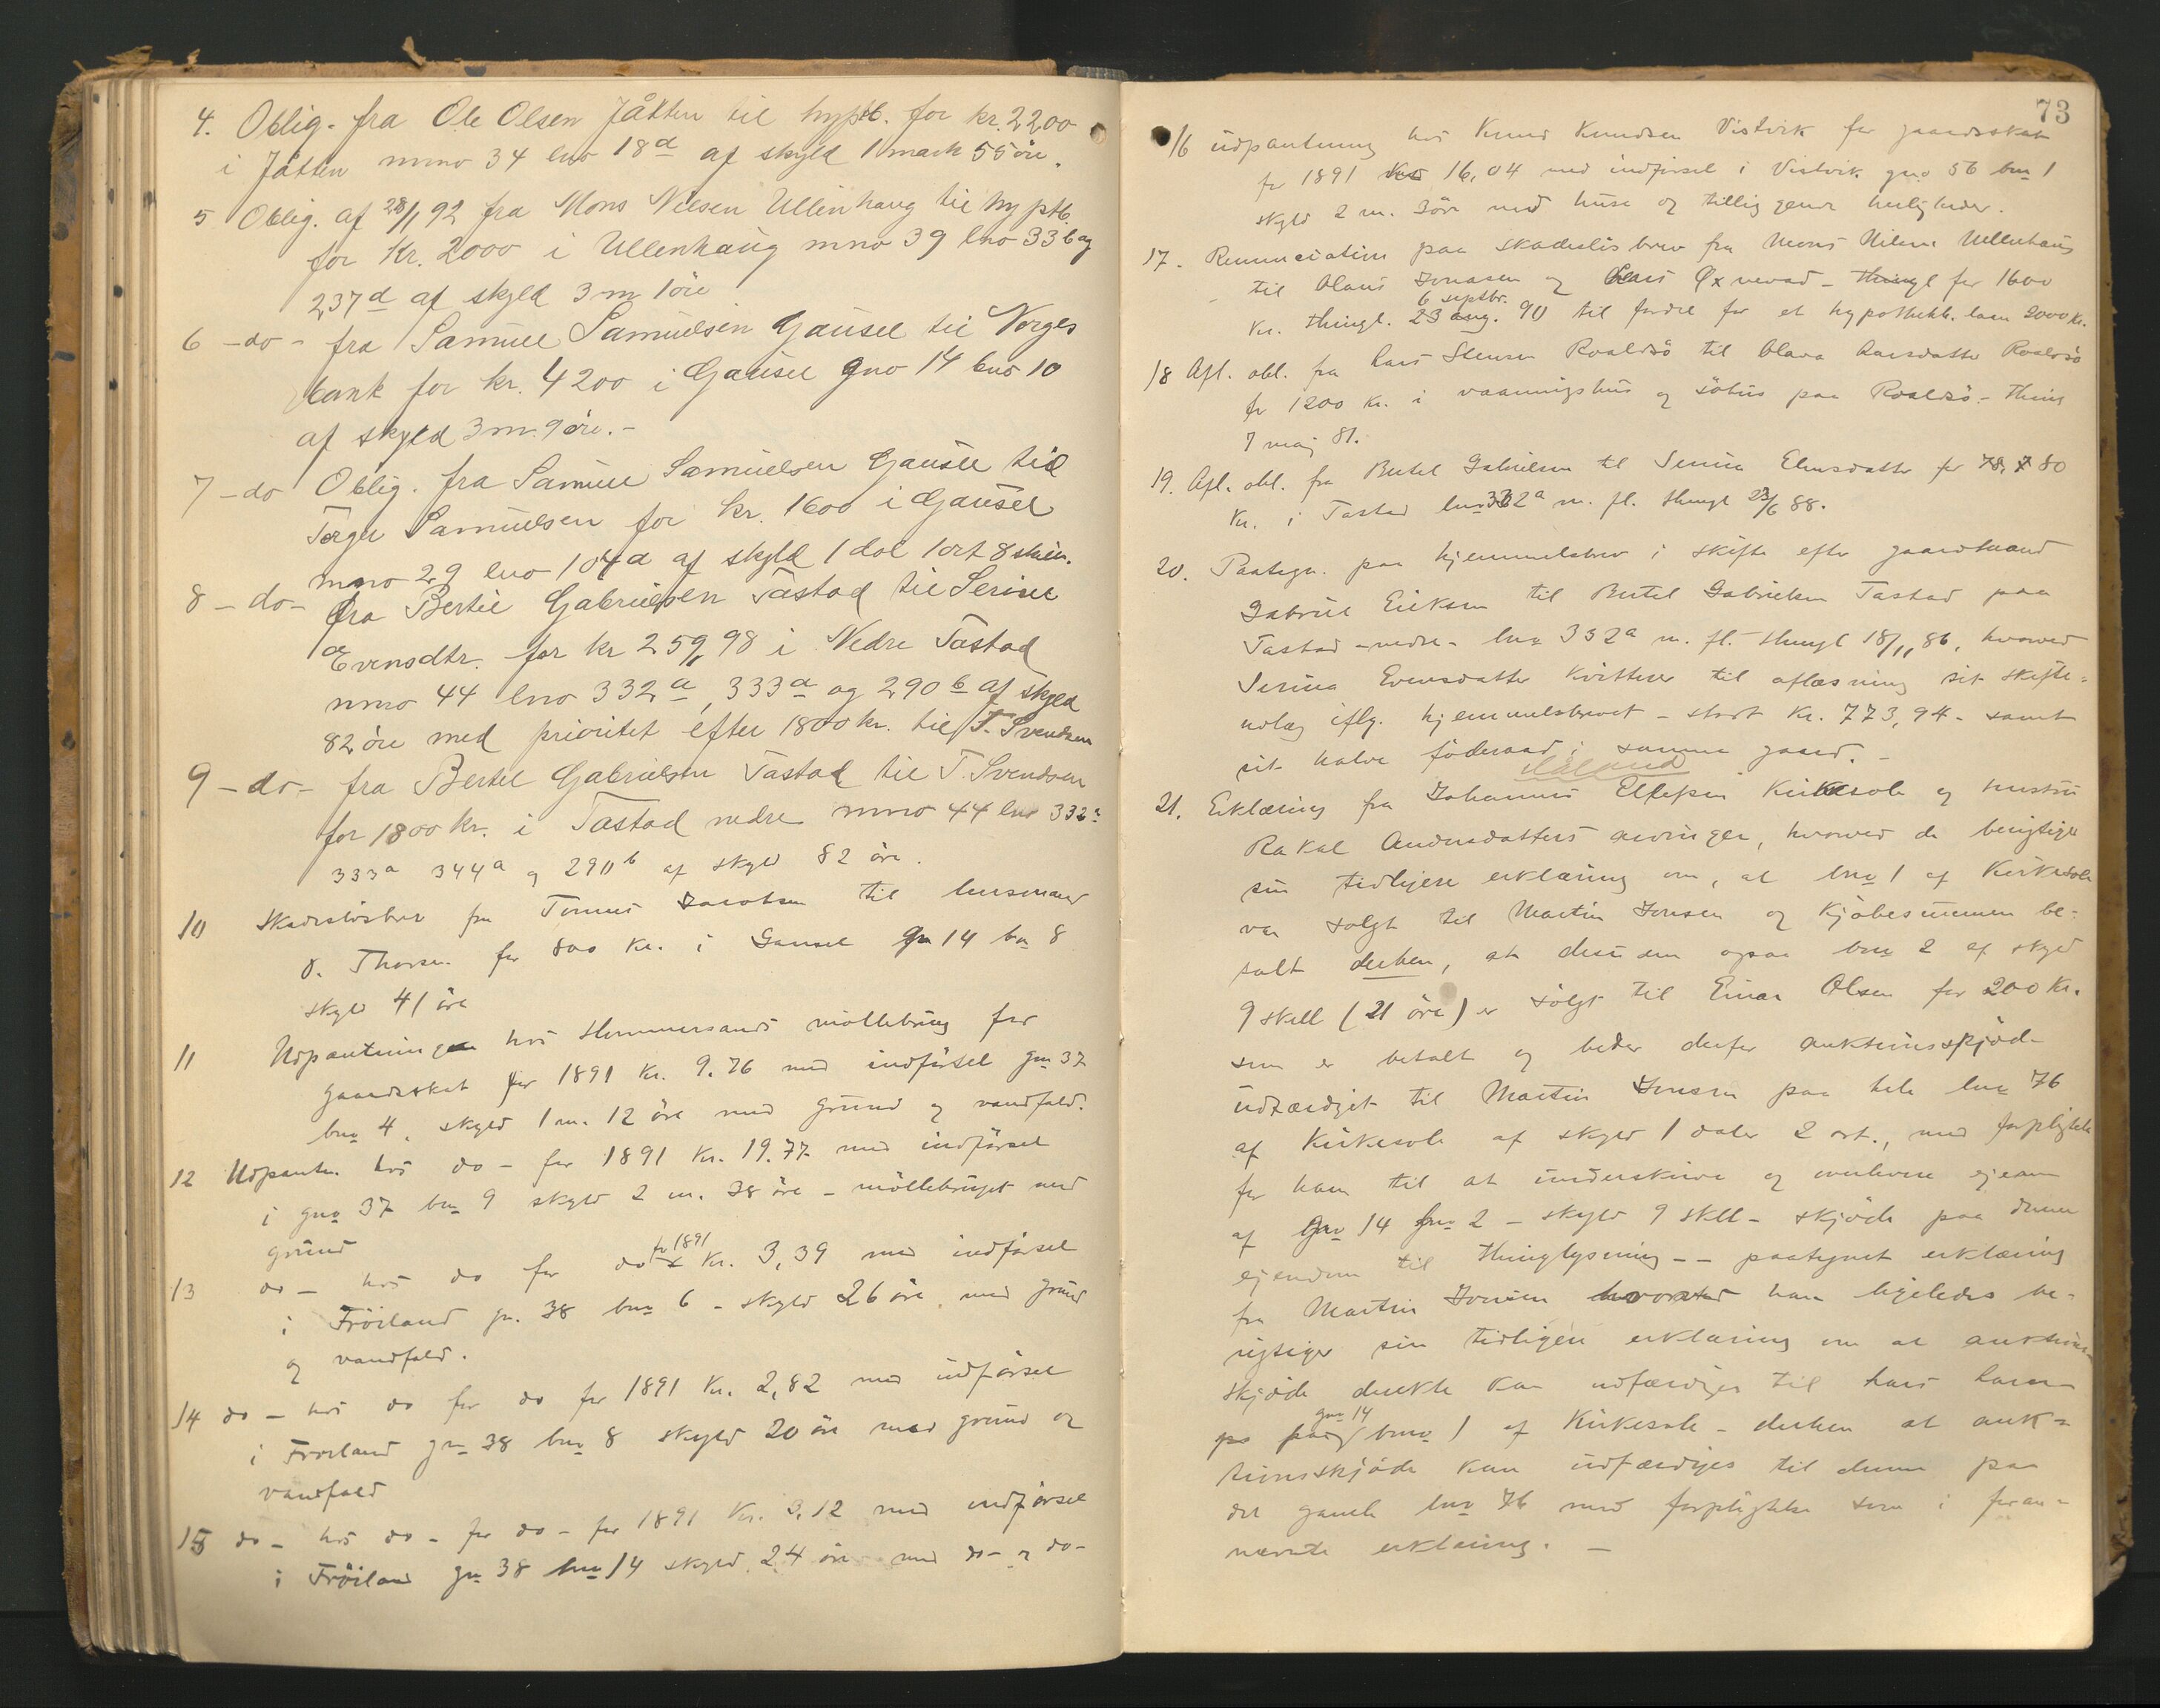 4. Oblig. fra Ole Olsen Jåtten til hyptb. for kr. 2200
i Jåtten mno 34 lno 18d af skyld 1 mark 55 öre.
5 Oblig. af 28/1 92 fra Mons Nilsen Ullenhaug til hyptb.
for Kr. 2000 i Ullenhaug mno 39 lno 33b og
237d af skyld 3 m 1 öre
6 -do- fra Samuel Samuelsen Gausel til Norges
bank for kr. 4200 i Gausel gno 14 bno 10
af skyld 3 m. 9 öre.-
7 -do Oblig. fra Samuel Samuelsen Gausel til
Torger Samuelsen for kr. 1600 i Gausel
mno 29 lno 104a af skyld 1 dal 1 ort 8 skill.
8 -do- fra Bertil Gabrielsen Tastad til Serine
Evensdtr. for kr 259,98 i Nedre Tastad
mno 44 lno 332a, 333a og 290b af skyld
82 öre med prioritet efter 1800 kr. til T. Svendsen
9 -do- fra Bertel Gabrielsen Tastad til T. Svendsen
for 1800 kr. i Tastad nedre mno 44 lno 332a
333a 344a og 290b af skyld 82 öre.
10 Skadeslösbrev fra Tønnes Jacobsen til lensmand
O. Thorsen for 800 kr. i Gausel gno 14 bno 8
skyld 41 öre
11 Udpantning hos Hommersands möllebrug for
gaardsskat for 1891 Kr. 9.76 med indförsel gno 37
bno 4, skyld 1 m. 12 öre med grund og vandfald.
12 Udpantn. hos do - for 1891 Kr. 19.77 med indförsel
i gno 37 bno 9 skyld 2 m. 38 öre - möllebruget med
grund
13 do - hos do for do for 1891 Kr. 3,39 med indförsel
i Fröiland gn. 38 bno 6 - skyld 26 öre med grund
og vandfald.
14 do - hos do for do for 1891 Kr. 2,82 med indförsel
i Froiland gno 38 bno 8 skyld 20 öre med grund og
vandfald
15 do - hos do - for do - for 1891 Kr. 3.12 med indförsel
i Fröiland gno 38 bno 14 skyld 24 öre med do - og do -
73
16 udpantning hos Knud Knudsen Vistvik for gaardsskat
for 1891 16,04 med indförsel i Vistvik gno 56 bno 1
skyld 2 m. 3 öre med huse og tilliggende herligheder.
17. Renunciation paa skadeslösbrev fra Mons Nilsen Ullenhaug
til Olaus Jonasen og Lars Øxnevad - thingl for 1600
6 septbr.
Kr. thingl. 23 aug. 90 til fordel for et hypothekb. laan 2000 kr.
18 Afl. obl. fra Lars Stensen Roaldsö til Olava Larsdatter Roaldsö
for 1200 Kr. i vaaningshus og söhus paa Roaldsö - thing
7 maj 81.
19. Afl. obl. fra Bertel Gabrielsen til Serina Evensdatter for 78,80
Kr. i Tastad lno 332a m. fl. thingl 23/6 88.
20. Paategn. paa hjemmelsbrev i skifte efter gaardmand
Gabriel Eriksen til Bertel Gabrielsen Tastad paa
Tastad - nedre - lno 332a m. fl. thingl 18/11 86, hvorved
Serina Evensdatter kvitterer til aflæsning sit skifte-
udlæg iflg. hjemmelsbrevet - stort Kr. 773,94 - samt
sit halve föderaad i samme gaard. -
21. Erklæring fra Johannes Ellefsen Kirkesole og hustru
Rakel Andersdatters arvinger, hvorved de berigtiger
sin tidligere erklæring om, at bno 1 af Kirkesole
var solgt til Martin Jonsen og kjöbesummen be-
talt derhen, at desuden ogsaa bno 2 af skyld
9 skill (21 öre) er solgt til Einar Olsen for 200 Kr.
som er betalt og beder derfor auktionsskjöde
udfærdiget til Martin Jonsen paa hele lno 76
af Kirkesole af skyld 1 daler 2 ort., med forpligtelse
for ham til at underskrive og overlevere
af gno 14 bno 2 - skyld 9 skill - skjöde paa denne
ejendom til thinglysning -- paategnet erklæring
fra Martin Jonsen hvorved han ligeledes be-
rigtiger sin tidligere erklæring om at auktions-
skjöde direkte kan udfærdiges til
gno 14
bno 1 af Kirkesole - derhen at auk-
tionsskjöde kan udfærdiges til denne paa
det gamle lno 76 med forpligtelse som i foran-
nævnte erklæring. -